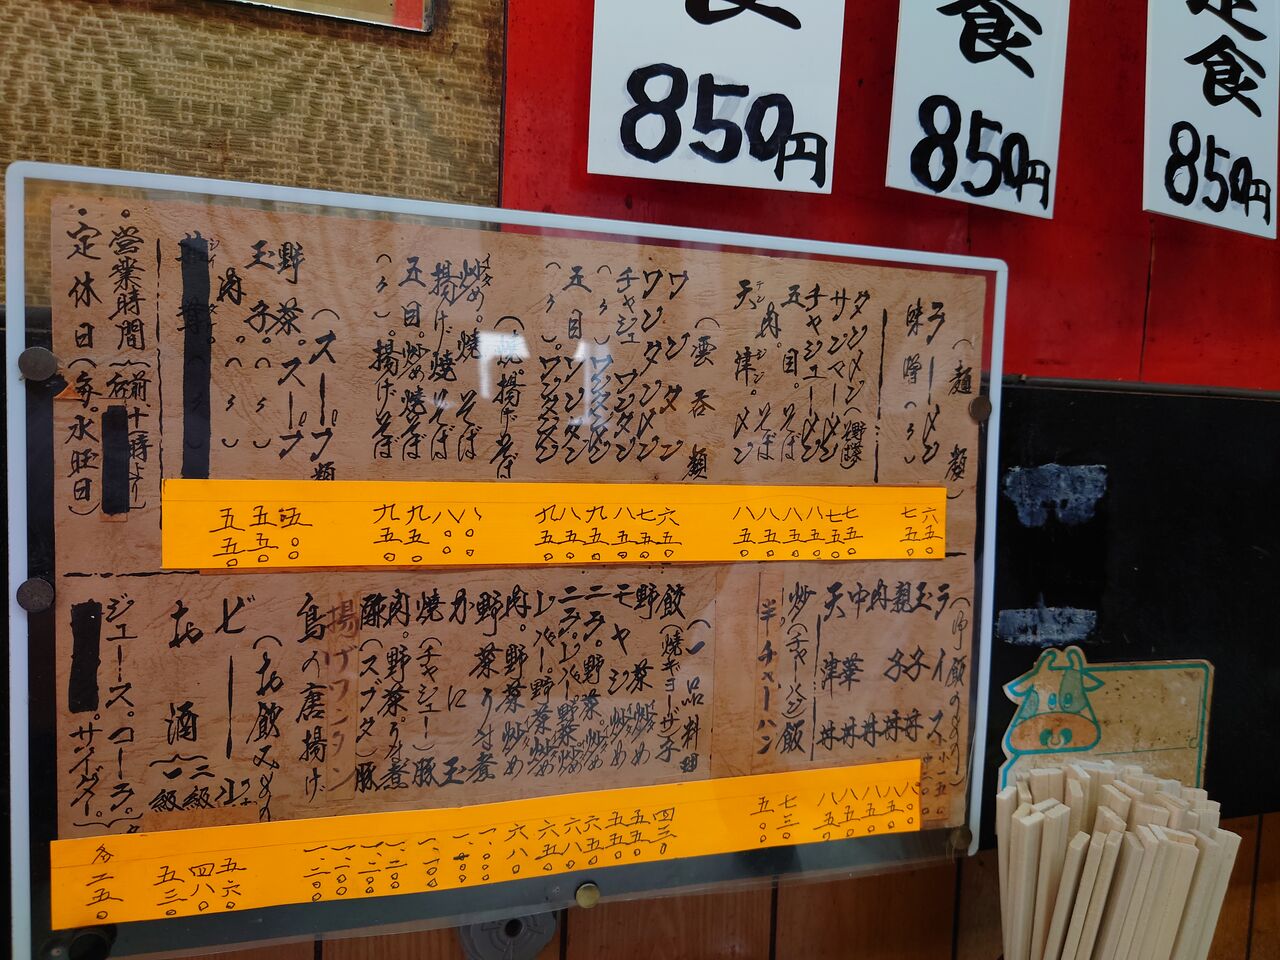 食
850円
食
850円
定食
850円
(麺類)
ラーメン 六五〇
味噌(〃) 七五〇
タンメン(野菜) 七五〇
サンマーメン 七五〇
チャシューメン 八五〇
五目。そば 八五〇
肉。そば 八五〇
天津。メン 八五〇
(雲呑類)
ワンタン 六五〇
ワンタンメン 七五〇
チャシューワンタン 八五〇
(〃)ワンタンメン 九五〇
五目。ワンタン 八五〇
(〃)。ワンタンメン 九五〇
(焼。揚げそば
炒め。焼そば 八〇〇
揚げ焼そば 八〇〇
五目。炒め焼そば 九五〇
(〃)。揚げそば 九五〇
(スープ類
野菜。スープ 五〇〇
玉子。(〃) 五五〇
肉。(〃) 五五〇
・営業時間
・定休日(毎。水旺日)
(御飯のもの)
ライス 小一五〇 中二〇〇
玉子丼 八〇〇
親子丼 八五〇
肉丼 八五〇
中華丼 八五〇
天津丼 八五〇
炒(チャーハン)飯 七三〇
半チャーハン 五〇〇
(一品料理
餃(焼ギョーザ)子 四三〇
野菜炒め 五五〇
モヤシ炒め 五五〇
ニラ。野菜炒め 六五〇
ニラ。レバー。野菜炒め 六八〇
レバー。野菜炒め 六五〇
肉。野菜炒め 六八〇
野菜うま煮
かに玉
焼(チャシュー)豚
肉。野菜うま煮
酢(スブタ)豚
揚げワンタン
鳥の唐揚げ
(お飲みもの
ビール 五六〇
お酒 二級 四八〇
一級 五三〇
ジュース。コーラ。サイダー。
各二五〇